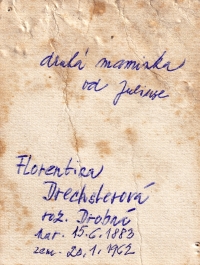 druhá maminka
od
Florentina
Drechslerová
roz. Drobná
nar. 15.6.1883
zem. 20.1.1962